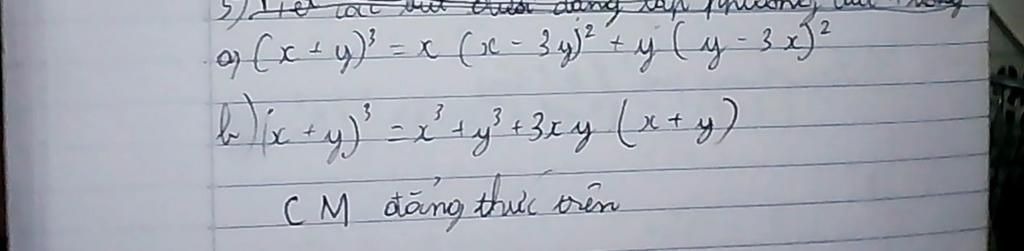 a) (x + y)³ = x (x - 3y)² + y (y - 3x)²
b) (x + y)³ = x³ + y³ + 3xy (x + y)
CM đẳng thức trên